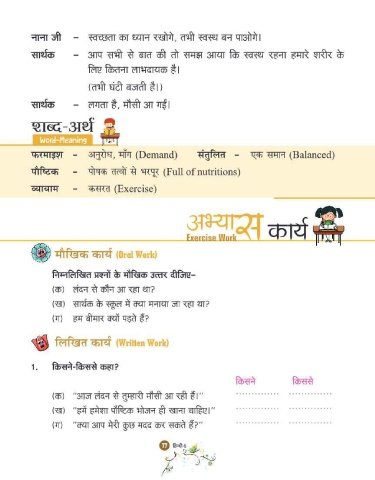 नाना जी – स्वच्छता का ध्यान रखोगे, तभी स्वस्थ बन पाओगे।
सार्थक – आप सभी से बात की तो समझ आया कि स्वस्थ रहना हमारे शरीर के
लिए कितना लाभदायक है।
(तभी घंटी बजती है।)
सार्थक – लगता है, मौसी आ गईं।
शब्द-अर्थ
Word-Meaning
फरमाइश – अनुरोध, माँग (Demand) संतुलित – एक समान (Balanced)
पौष्टिक – पोषक तत्वों से भरपूर (Full of nutritions)
व्यायाम – कसरत (Exercise)
अभ्यास कार्य
Exercise Work
मौखिक कार्य (Oral Work)
निम्नलिखित प्रश्नों के मौखिक उत्तर दीजिए–
(क) लंदन से कौन आ रहा था?
(ख) सार्थक के स्कूल में क्या मनाया जा रहा था?
(ग) हम बीमार क्यों पड़ते हैं?
लिखित कार्य (Written Work)
1. किसने-किससे कहा?
किसने किससे
(क) "आज लंदन से तुम्हारी मौसी आ रही हैं।" ................ ................
(ख) "हमें हमेशा पौष्टिक भोजन ही खाना चाहिए।" ................ ................
(ग) "क्या आप मेरी कुछ मदद कर सकते हैं?" ................ ................
77 हिन्दी-5